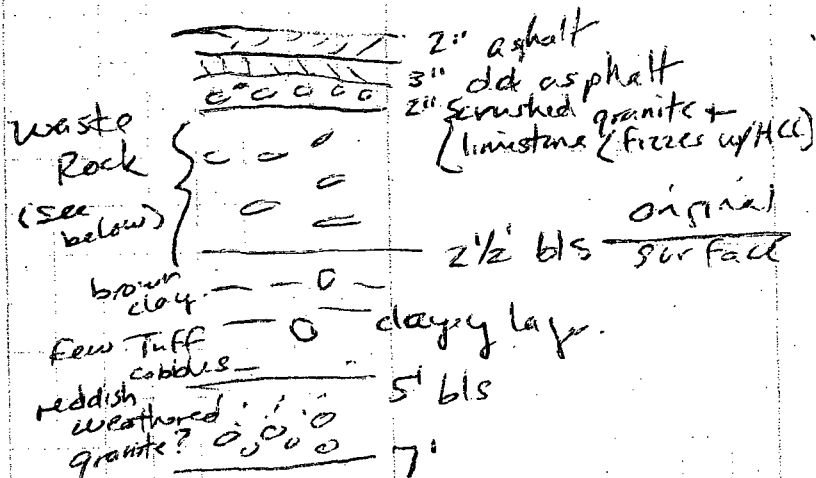 2" asphalt
3" old asphalt
2" crushed granite +
limestone (fizzes w/ HCl)
Waste
Rock
(see
below)
2½' bls original
surface
brown
clay
clayey layer.
Few Tuff
cobbles
5' bls
reddish
weathered
granite?
7'